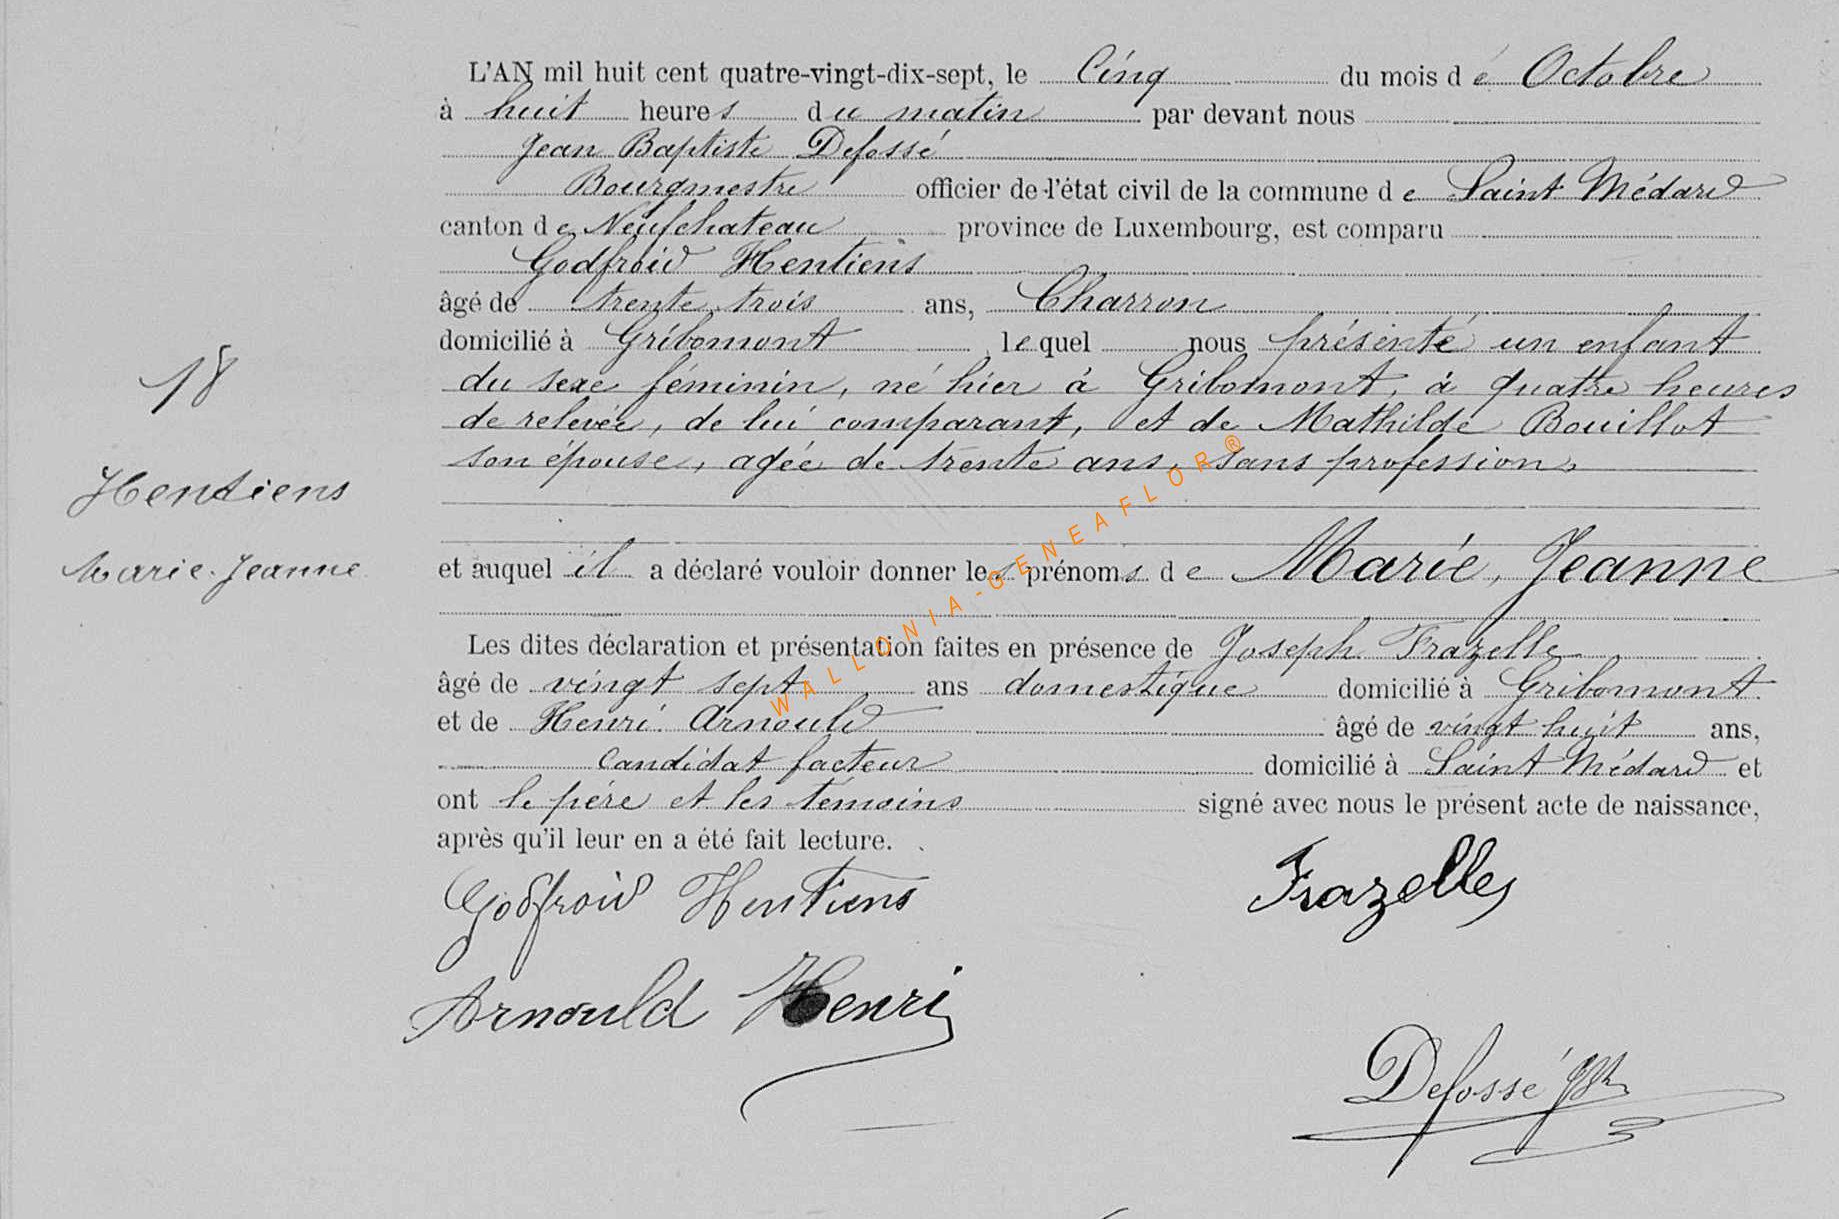 L'AN mil huit cent quatre-vingt-dix-sept, le Cinq du mois de Octobre
à huit heures du matin par devant nous
Jean Baptiste Defossé
Bourgmestre officier de l'état civil de la commune de Saint Médard
canton de Neufchateau province de Luxembourg, est comparu
Godfroid Hentiens
âgé de trente trois ans, Charron
domicilié à Gribomont lequel nous présenté un enfant
du sexe féminin, né hier à Gribomont, à quatre heures
de relevée, de lui comparant, et de Mathilde Bouillot
son épouse, agée de trente ans, sans profession,
et auquel il a déclaré vouloir donner les prénoms de Marie, Jeanne
Les dites déclaration et présentation faites en présence de Joseph Frazelle
âgé de vingt sept ans domestique domicilié à Gribomont
et de Henri Arnould âgé de vingt huit ans,
candidat facteur domicilié à Saint Médard et
ont le père et les témoins signé avec nous le présent acte de naissance,
après qu'il leur en a été fait lecture.
Godfroid Hentiens
Frazelle
Arnould Henri
Defossé JBt
18
Hentiens
Marie-Jeanne
WALLONIA-GENEAFLOR®